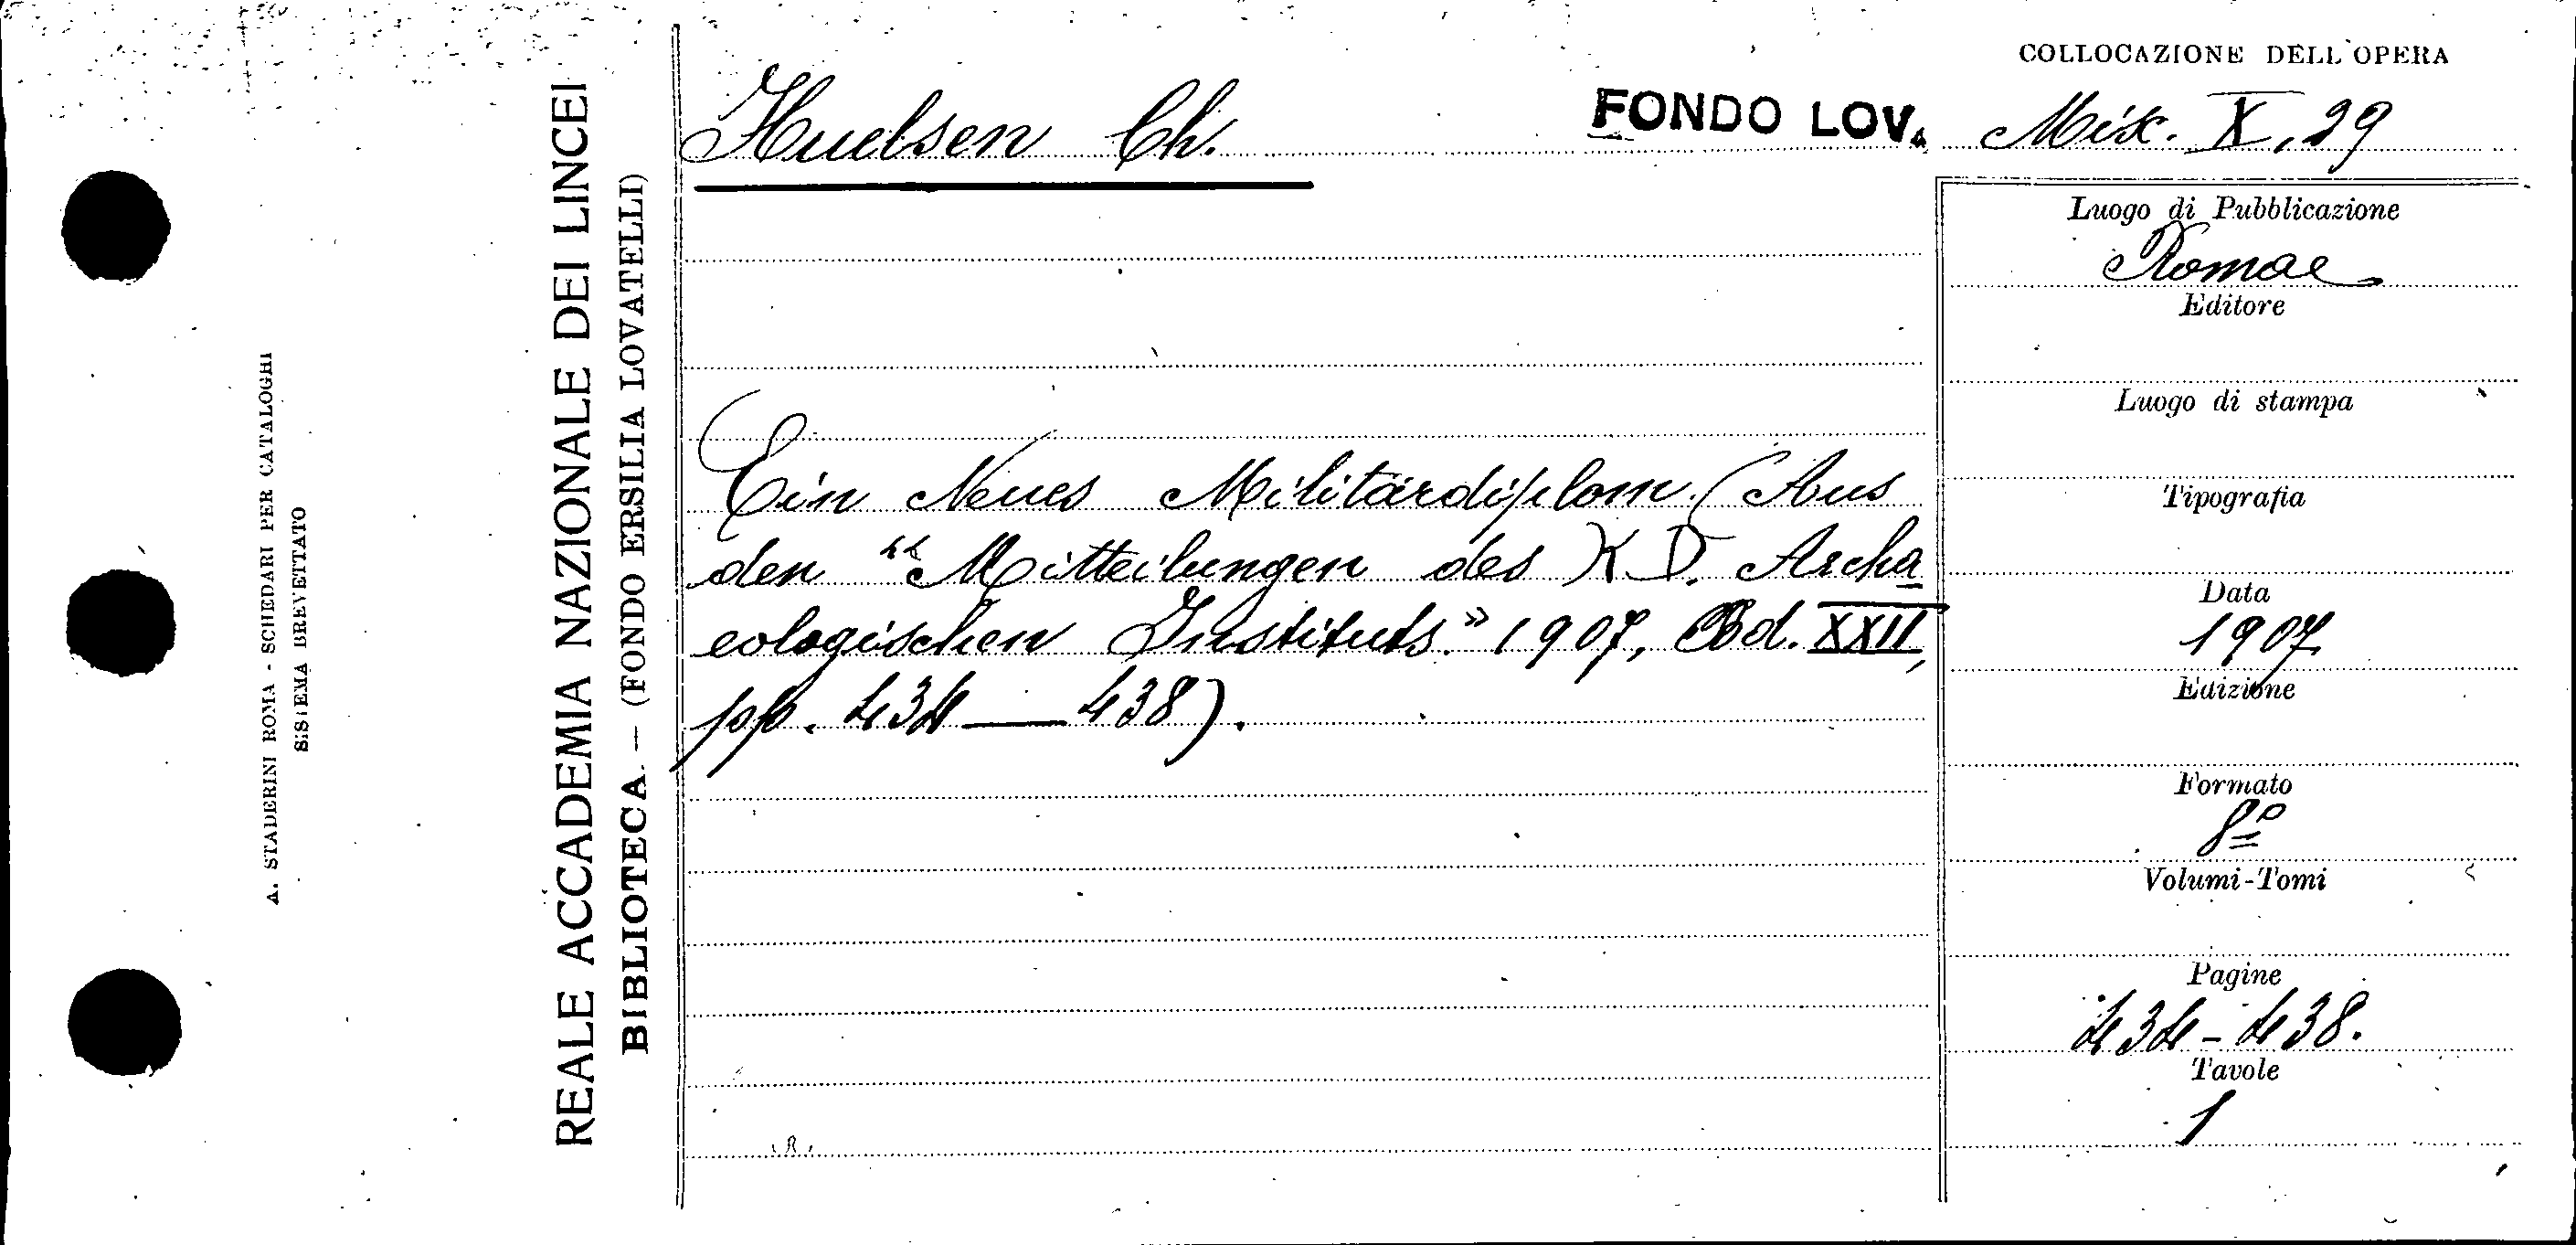 COLLOCAZIONE DELL'OPERA
Huelsen Ch.
FONDO LOV. Misc. X, 29
Ein Neues Militärdiplom. (Aus
den "Mitteilungen des K. D. Archa
eologischen Instituts." 1907, Bd. XXII,
pp. 434 — 438).
Luogo di Pubblicazione
Romae
Editore
Luogo di stampa
Tipografia
Data
1907
Edizione
Formato
8º
Volumi-Tomi
Pagine
434-438.
Tavole
1
REALE ACCADEMIA NAZIONALE DEI LINCEI
BIBLIOTECA. — (FONDO ERSILIA LOVATELLI)
A. STADERINI ROMA - SCHEDARI PER CATALOGHI
SISTEMA BREVETTATO